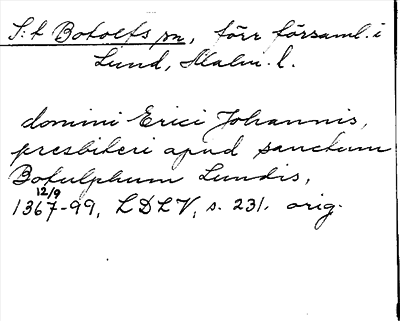 S:t Botolfs sn, förr församl. i
Lund, Malm. l.
domini Erici Johannis,
presbiteri apud sanctum
Botulphum Lundis,
12/9
1367-99, LDLV, s. 231. orig.